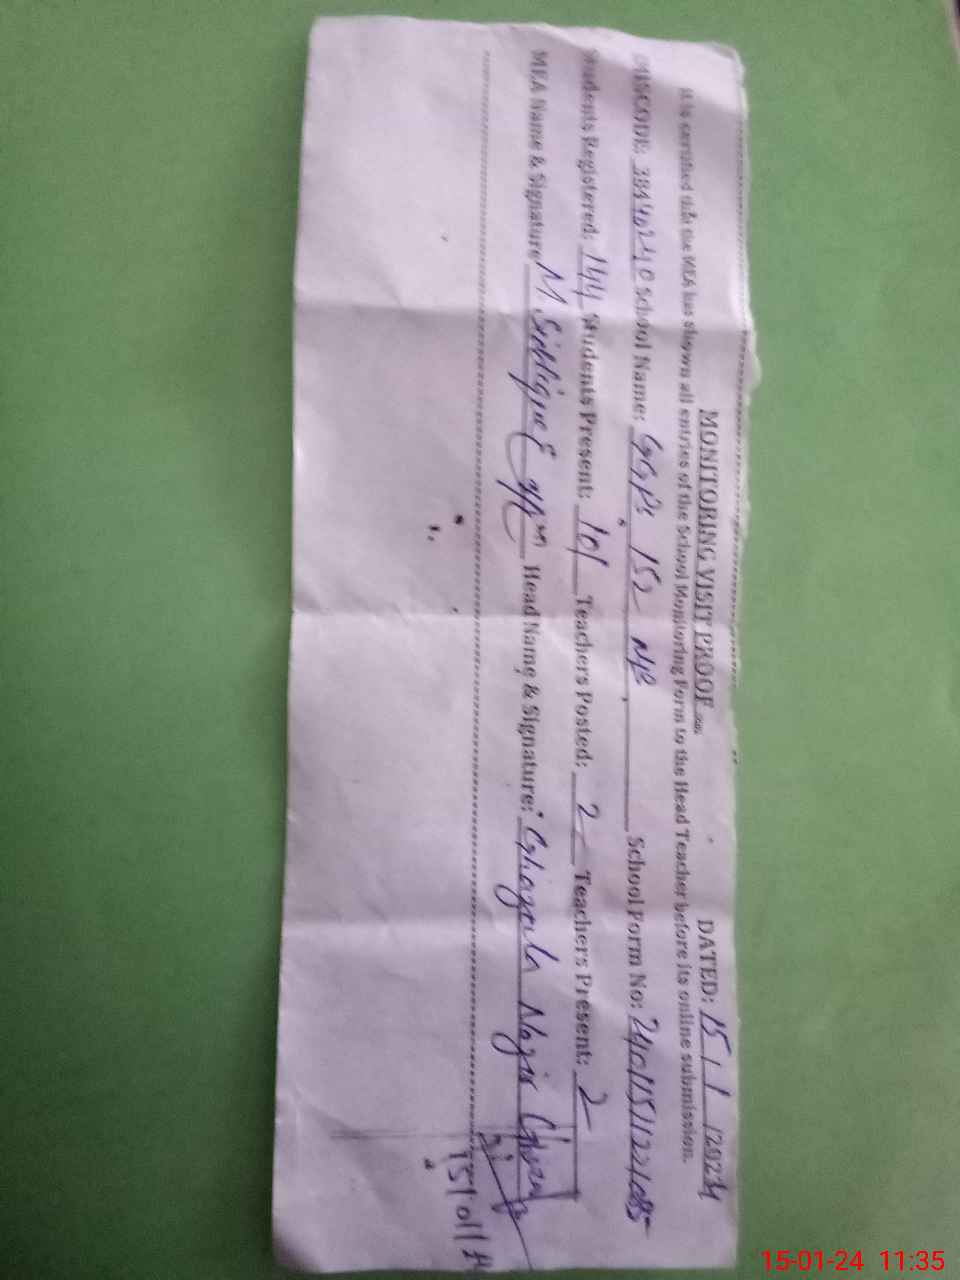 MONITORING VISIT PROOF DATED: 15/1/2024
It is certified that the MEA has shown all entries of the School Monitoring Form to the Head Teacher before its online submission.
EMISCODE: 38440240 School Name: GGPS 152 NB School Form No:
Students Registered: 144 Students Present: 101 Teachers Posted: 2 Teachers Present: 2
MEA Name & Signature M. Siddique Head Name & Signature: Nazir
15/01/24
15-01-24 11:35